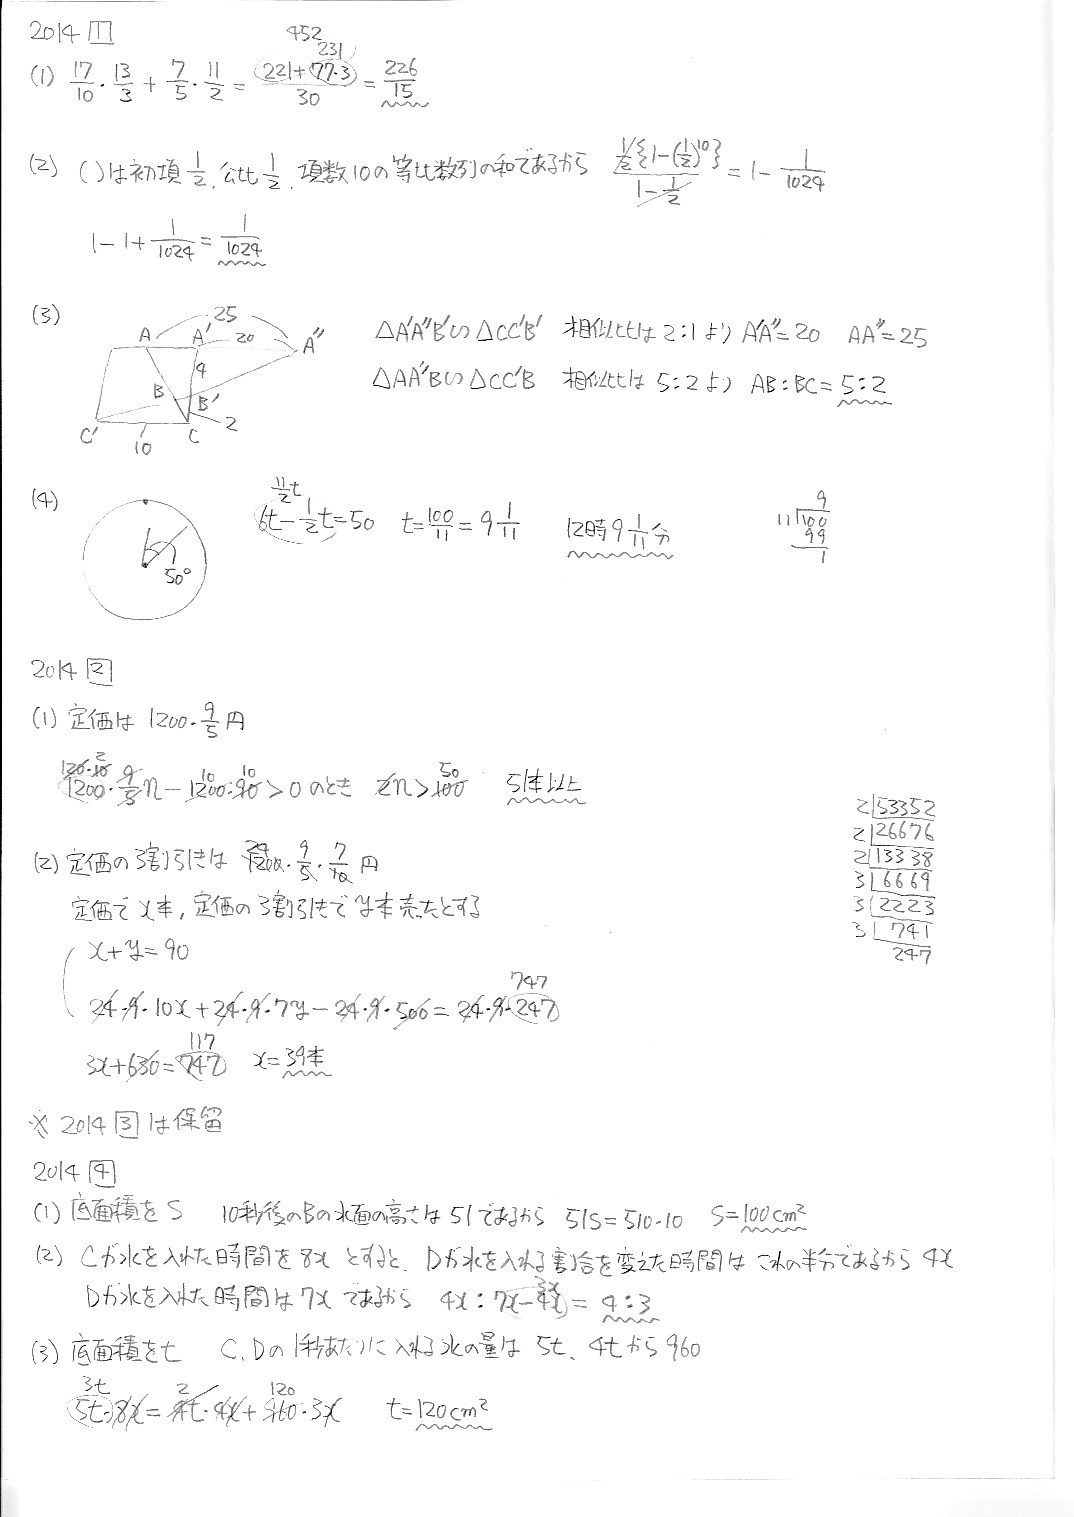 2014 1
452
231
(1) 17/10・13/3 + 7/5・11/2 = (221+77・3)/30 = 226/15
(2) ( )は初項1/2, 公比1/2, 項数10の等比数列の和であるから 1/2{1-(1/2)^10}/(1-1/2) = 1 - 1/1024
1-1+1/1024 = 1/1024
(3)
25
A A' 20 A"
4
B B'
C' C 2
10
△A'A"B'∽△CC'B' 相似比は2:1より A'A"=20 AA"=25
△AA"B∽△CC'B 相似比は5:2より AB:BC=5:2
(4)
50°
11/2t
6t-1/2t=50 t=100/11=9 1/11 12時9 1/11分
9
11 100
99
1
2014 2
(1) 定価は1200・9/5円
120・10 2 9 10 10 50
1200・9/5n-1200・90>0のとき 2n>100 51本以上
(2) 定価の3割引きは 1200・9/5・7/10円
24
定価でx本, 定価の3割引きでy本売ったとする
x+y=90
747
24・9・10x+24・9・7y-24・9・500=24・9・247
117
3x+630=747 x=39本
2 53352
2 26676
2 13338
3 6669
3 2223
3 741
247
※ 2014 3 は保留
2014 4
(1) 底面積をS 10秒後のBの水面の高さは51であるから 51S=510・10 S=100cm²
(2) Cが水を入れた時間を8xとすると, Dが水を入れる割合を変えた時間はこれの半分であるから4x
3x
Dが水を入れた時間は7xであるから 4x:7x-4x=4:3
(3) 底面積をt C, Dの1秒あたりに入れる水の量は 5t, 4tから960
3t 2 120
5t・8x=4t・4x+960・3x t=120cm²